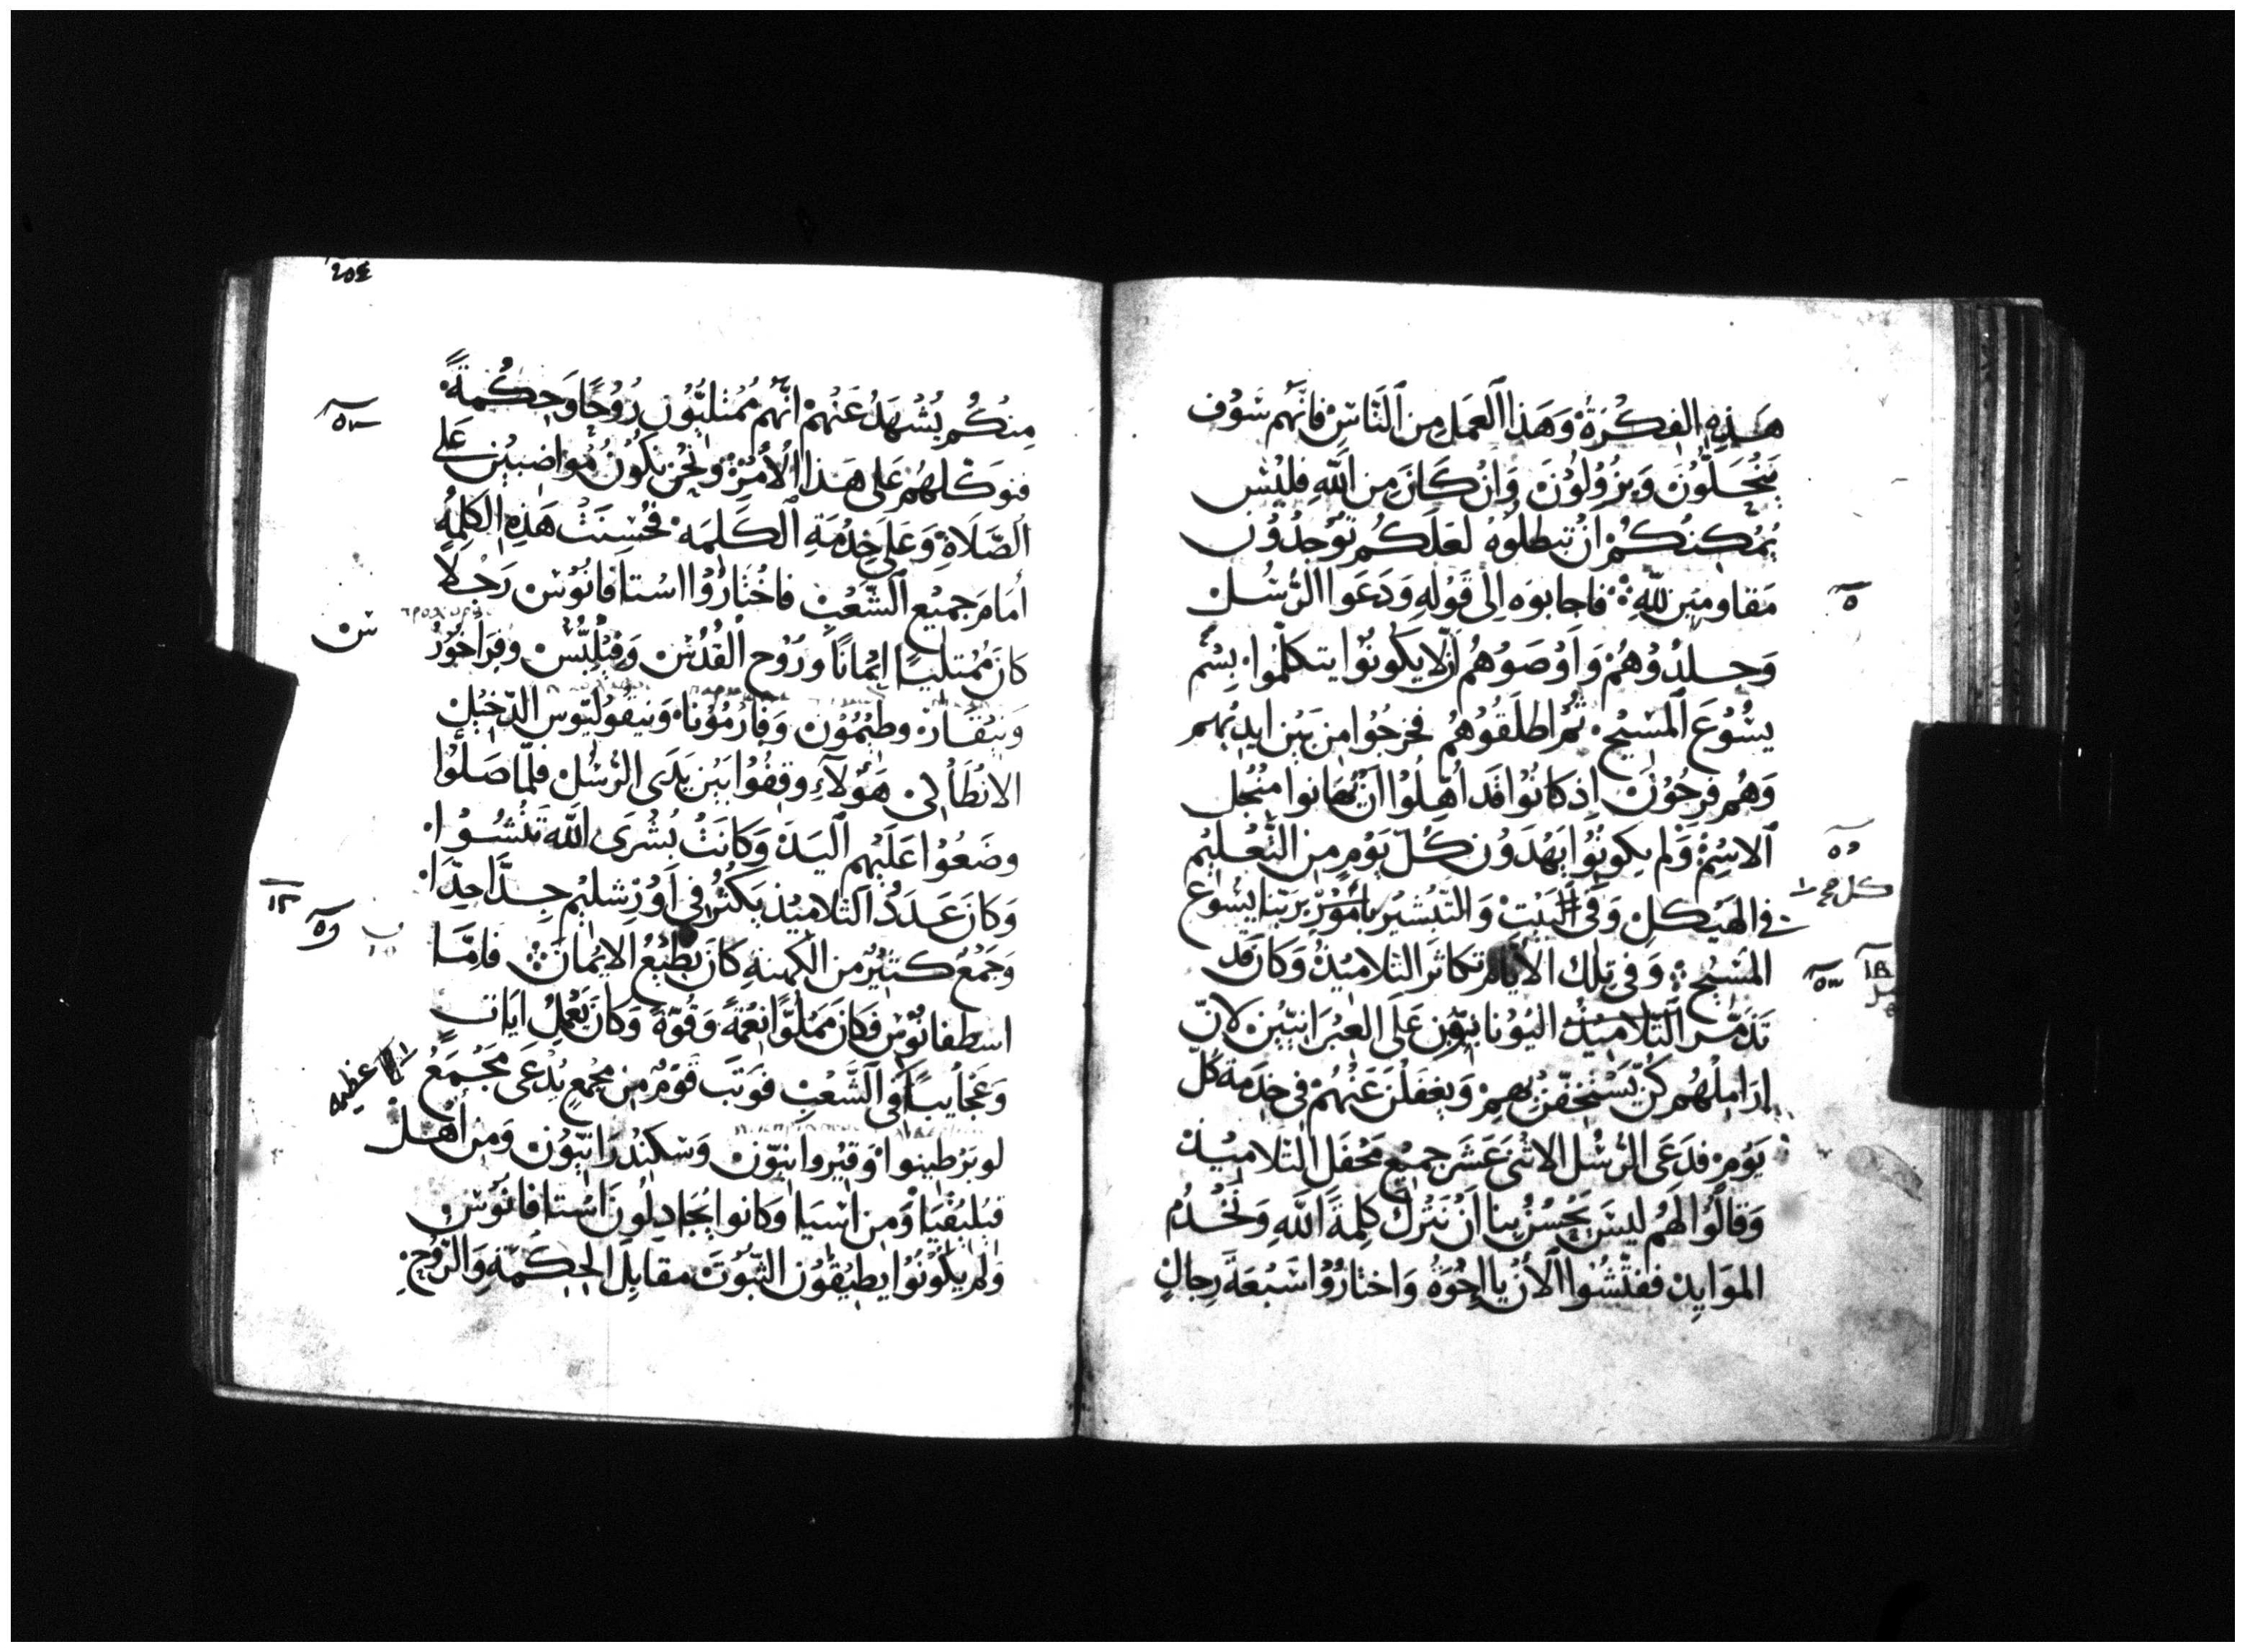 هَذِهِ الفِكْرَةُ وَهَذَا العَمَلِ مِنَ النَّاسِ فَانَّهُم سَوْفَ
يَنْحَلُّونَ وَيَزُولُونَ وَانْ كَانَ مِنَ اللَّهِ فَلَيْسَ
يُمْكِنُكُمْ انْ تُبطِلُوهُ لَعَلَّكُم تُوجَدُونَ
مُقَاومِينَ لِلَّهِ فاجابوه اِلى قَوْلِهِ وَدَعَوا الرُّسُلَ
وَجَلَدُوهُمْ وَاَوْصَوهُمْ اَنْ لا يَكونُوا يتكلمُوا بِسْمِ
يَسُوعَ المَسِيحِ ثُمَّ اطلَقُوهُم فخرجُوا من بَيْن ايديهم
وَهُم فَرِحُونَ اِذ كانُوا قَد اُهِلُوا انْ يُهَانوا مِنْ اجل
الاسْمِ وَلم يكونُوا يَهْدَون كُلَّ يَوْمٍ مِن التَّعْلِيم
في الهَيْكَلِ وَفي البَيْتِ وَالتَّبْشِيرِ بأمُورِ رَبّنا يَسُوع
المَسِيحِ وَفي تِلك الاَيَّامِ تكاثَر التلاميذُ وَكان قد
تَذَمَّر التَّلاميذُ اليُونانيّون عَلَى العِبْرَانيّين لانَّ
ارَامِلَهُم كُنّ يُسْتَخفّ بِهِمْ وَيغفَلْنَ عَنْهُمْ في خِدْمَة كُل
يَومٍ فدَعَى الرُسُل الاثنَى عَشَر جميع مَحْفَل التلاميذ
وَقالُوا لَهُم ليسَ يَحْسُنُ بِنا اَنْ نَتْرُك كلِمَةَ اللَّهِ وَنَخْدُم
المَوَايِد ففَتّشُوا الاَنْ يا اخْوَةُ وَاختارُوا سَبْعَةَ رِجالٍ
كل
٢٥٤
مِنْكُم يُشْهَدُ عَنهُمْ انَّهُم مُمْتَلِئُون رُوْحًا وَحِكْمَةً
فنوَكّلهُم عَلى هَذا الاَمْرِ وَنَحْنُ نكونُ مُواضبين عَلى
الصَّلاةِ وَعَلى خِدْمَةِ الكَلِمَة فَحَسُنَتْ هَذِهِ الكَلِمَةُ
اَمَامَ جميع الشَّعْبِ فاخْتَارُوا استافانُوس رَجُلاً
كانَ مُمْتَلياً اِيْمَانًا وَرُوْح القُدُس وَفيْلِبُّس وَفرَاخُورُ
وَنيْقَانَ وطيْمُون وَفارْمُونا وَنيقولَيوس الدّخِيْل
الانْطَاْكيّ هَؤُلآءِ وقفُوا بَيْن يَدَى الرُّسُل فلَمّا صَلّوا
وضَعُوا عَلَيْهم اليَدَ وَكانَتْ بُشْرَى اللَّه تَنْشُوا
وَكانَ عَدَدُ التلاميذ يَكثُرُ في اَورشليم جدَّا جدَّا
وَجَمْعٌ كثيْرٌ من الكهنةِ كانَ يُطيْعُ الايْمَانَ فامَّا
اسطفانُوس فكان مَملوًّا نِعْمَةً وَقُوَّةً وَكانَ يَعْمِلُ ايَات
وَعَجايباً في الشَّعْبِ فوَثب قَوْمٌ مِن مجمعٍ يُدْعَى مَجْمَعُ
لوبَرْطينوا وَقيْروانيّون وَسكنْدَرَانيّون وَمِن اَهْل
قيلِيقْيَا وَمِن اَسْيَا وَكانوا يُجَادِلُونَ اسْتافانُوس
وَلم يكونُوا يُطيْقُون الثّبوت مقابِلَ الحِكمَةِ وَالرُّوْحِ
عظيمة